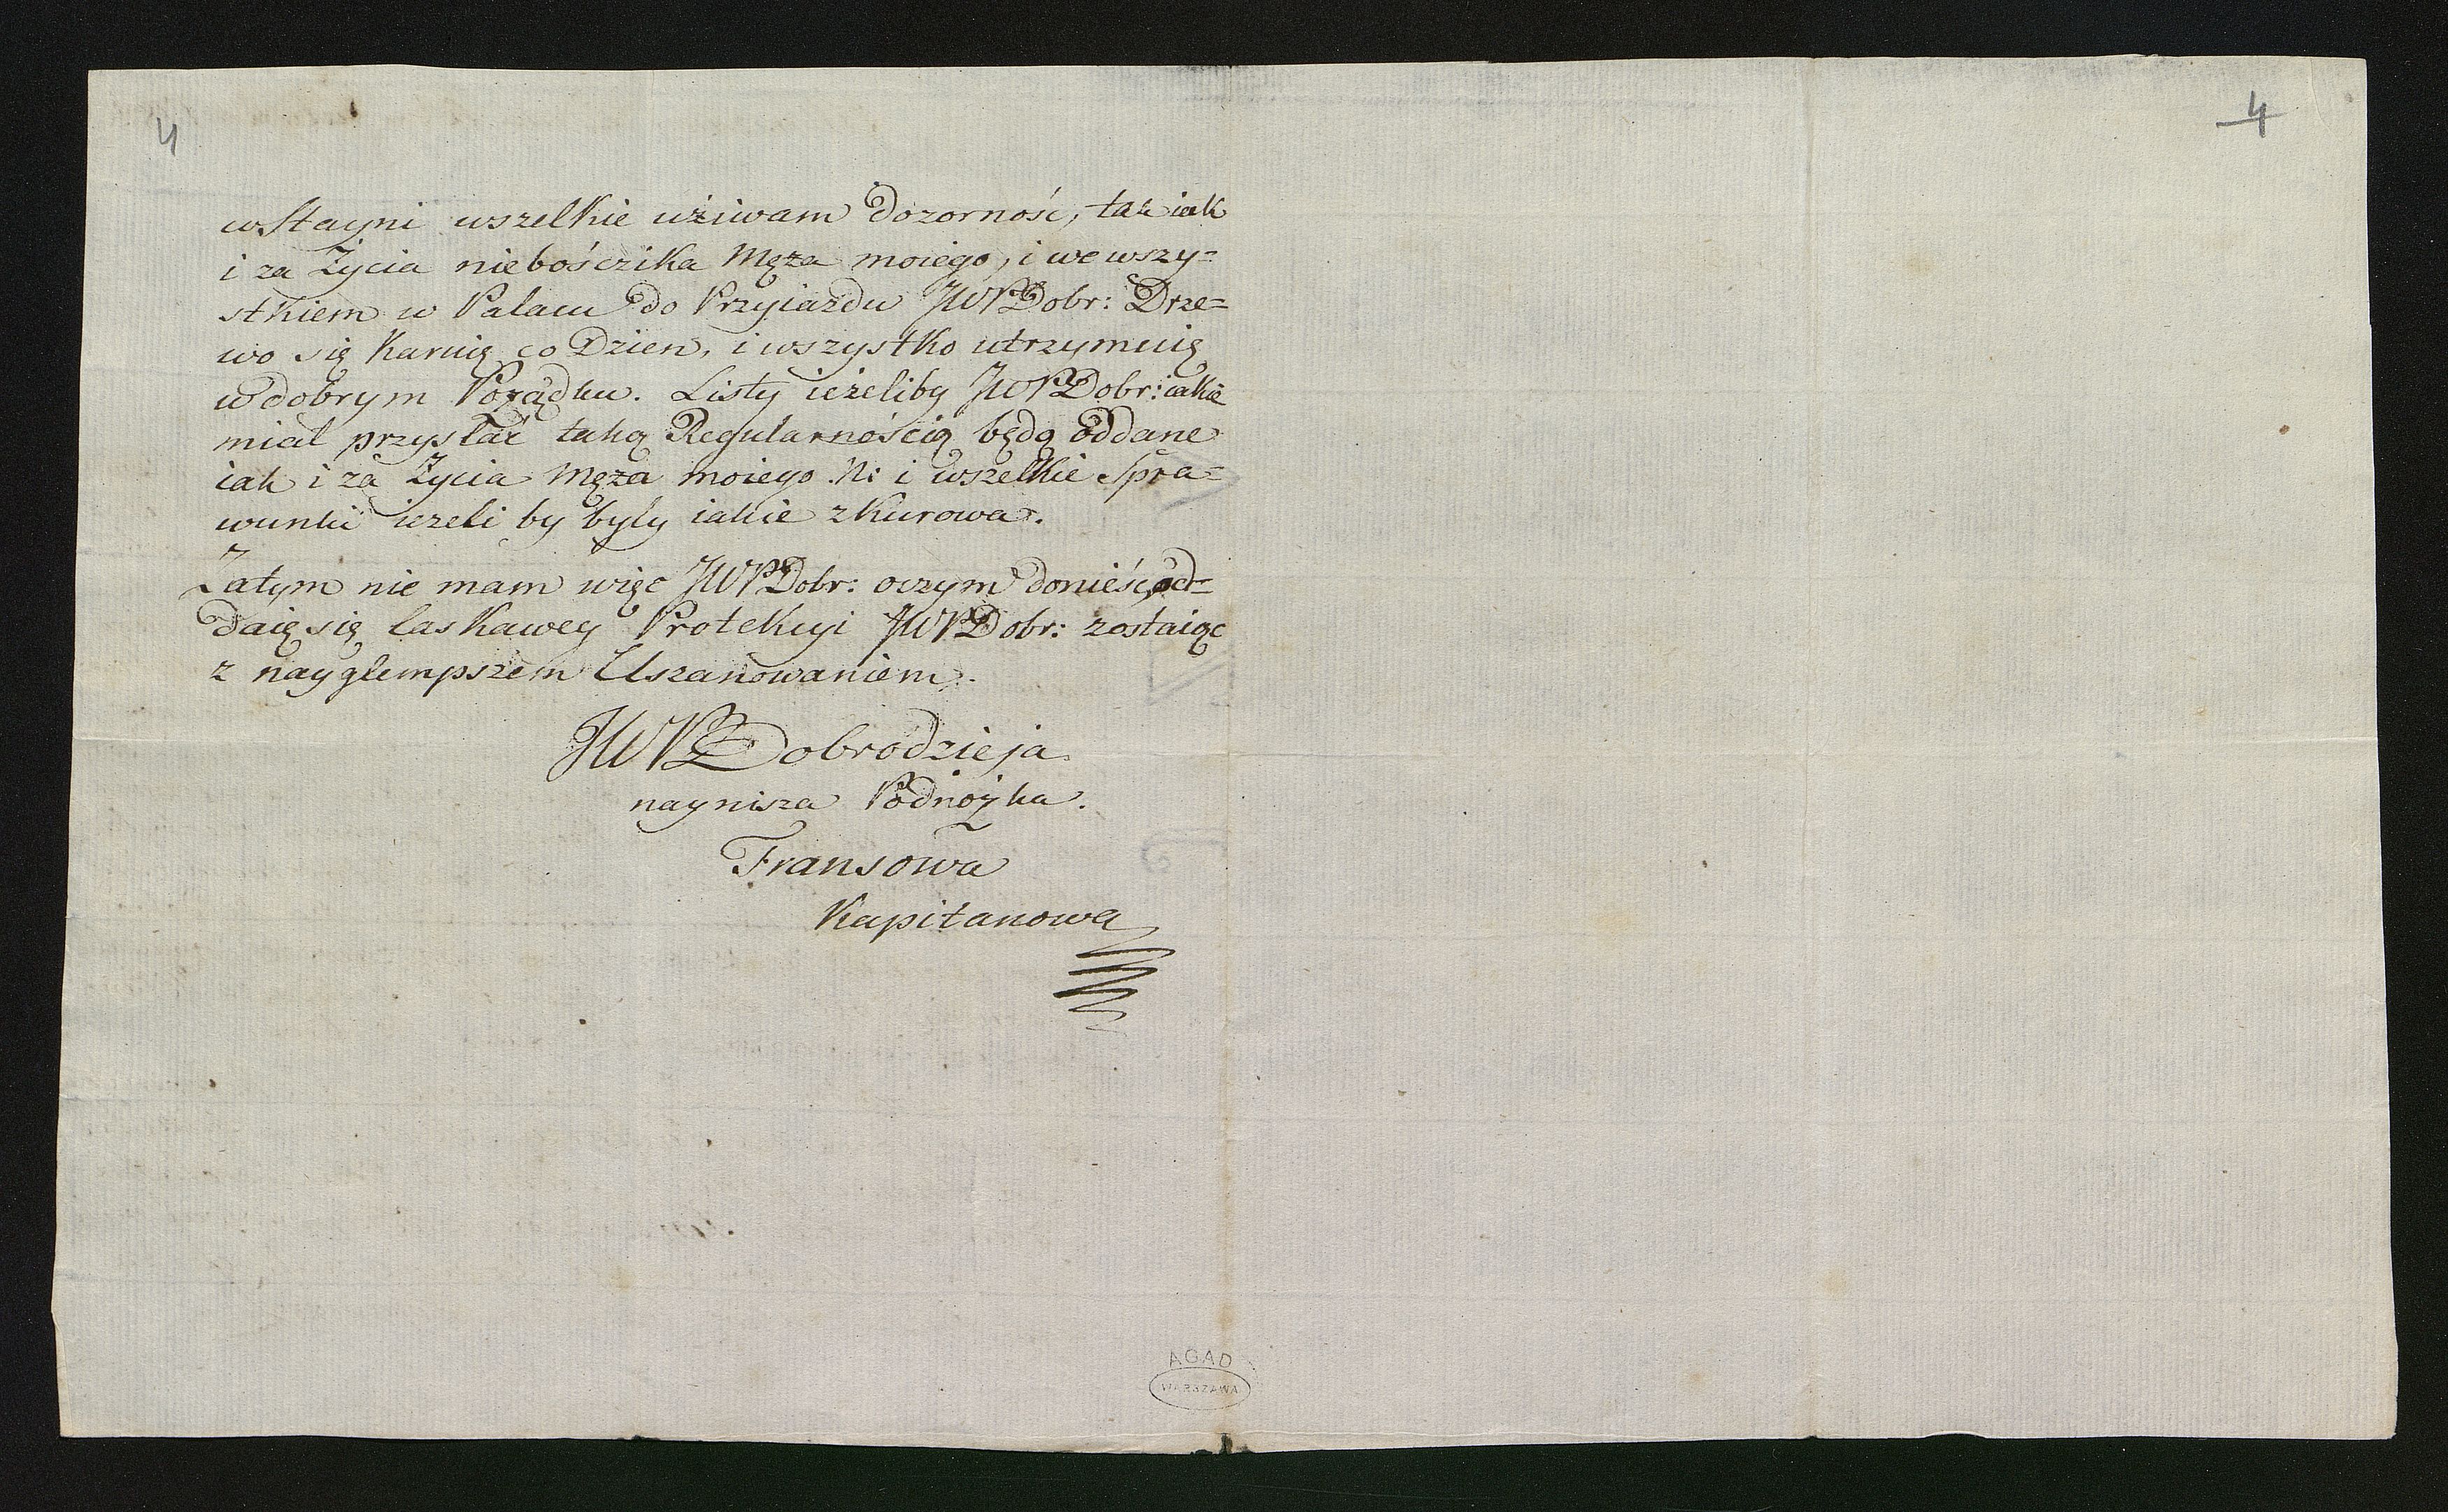 4
4
wStayni wszelkie użiwam dozorność, tak iak
i za Życia niebośczika Męża moiego, i we wszy=
stkiem w Palacu do Przyiazdu JWPDobr: Drze=
wo się Karuię co Dzien, i wszystko utrzymuię
w dobrym Porządku. Listy ieżeliby JWPDobr: iakie
mial przysłać taką Regularnością będą oddane
iak i za Życia Męża moiego N: i wszelkie Spra=
wunki ieżeli by byly iakie z Kurowa.
Zatym nie mam więc JWPDobr: oczym donieść, od=
daię się laskawey Protekcyi JWPDobr: zostaiąc
z nayglempszem Uszanowaniem.
JWPDobrodzieja
naynisza Podnożka.
Fransowa
Kapitanowa
AGAD
WARSZAWA